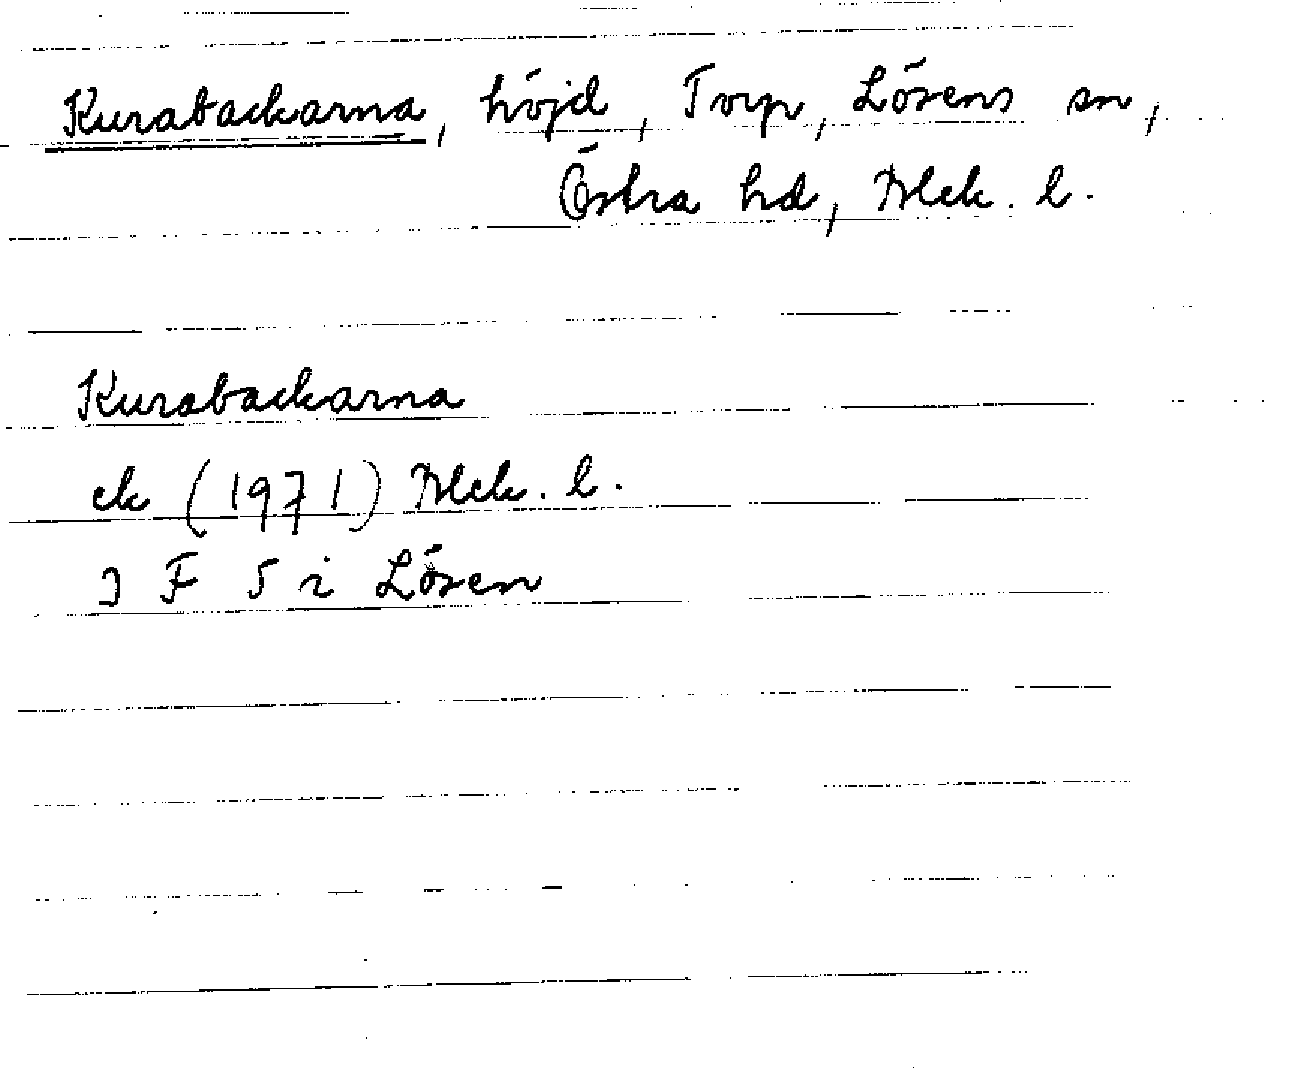 Kurabackarna, höjd, Torp, Lösens sn,
Östra hd, Blek. l.
Kurabackarna
ek (1971) Blek. l.
3 F 5 i Lösen